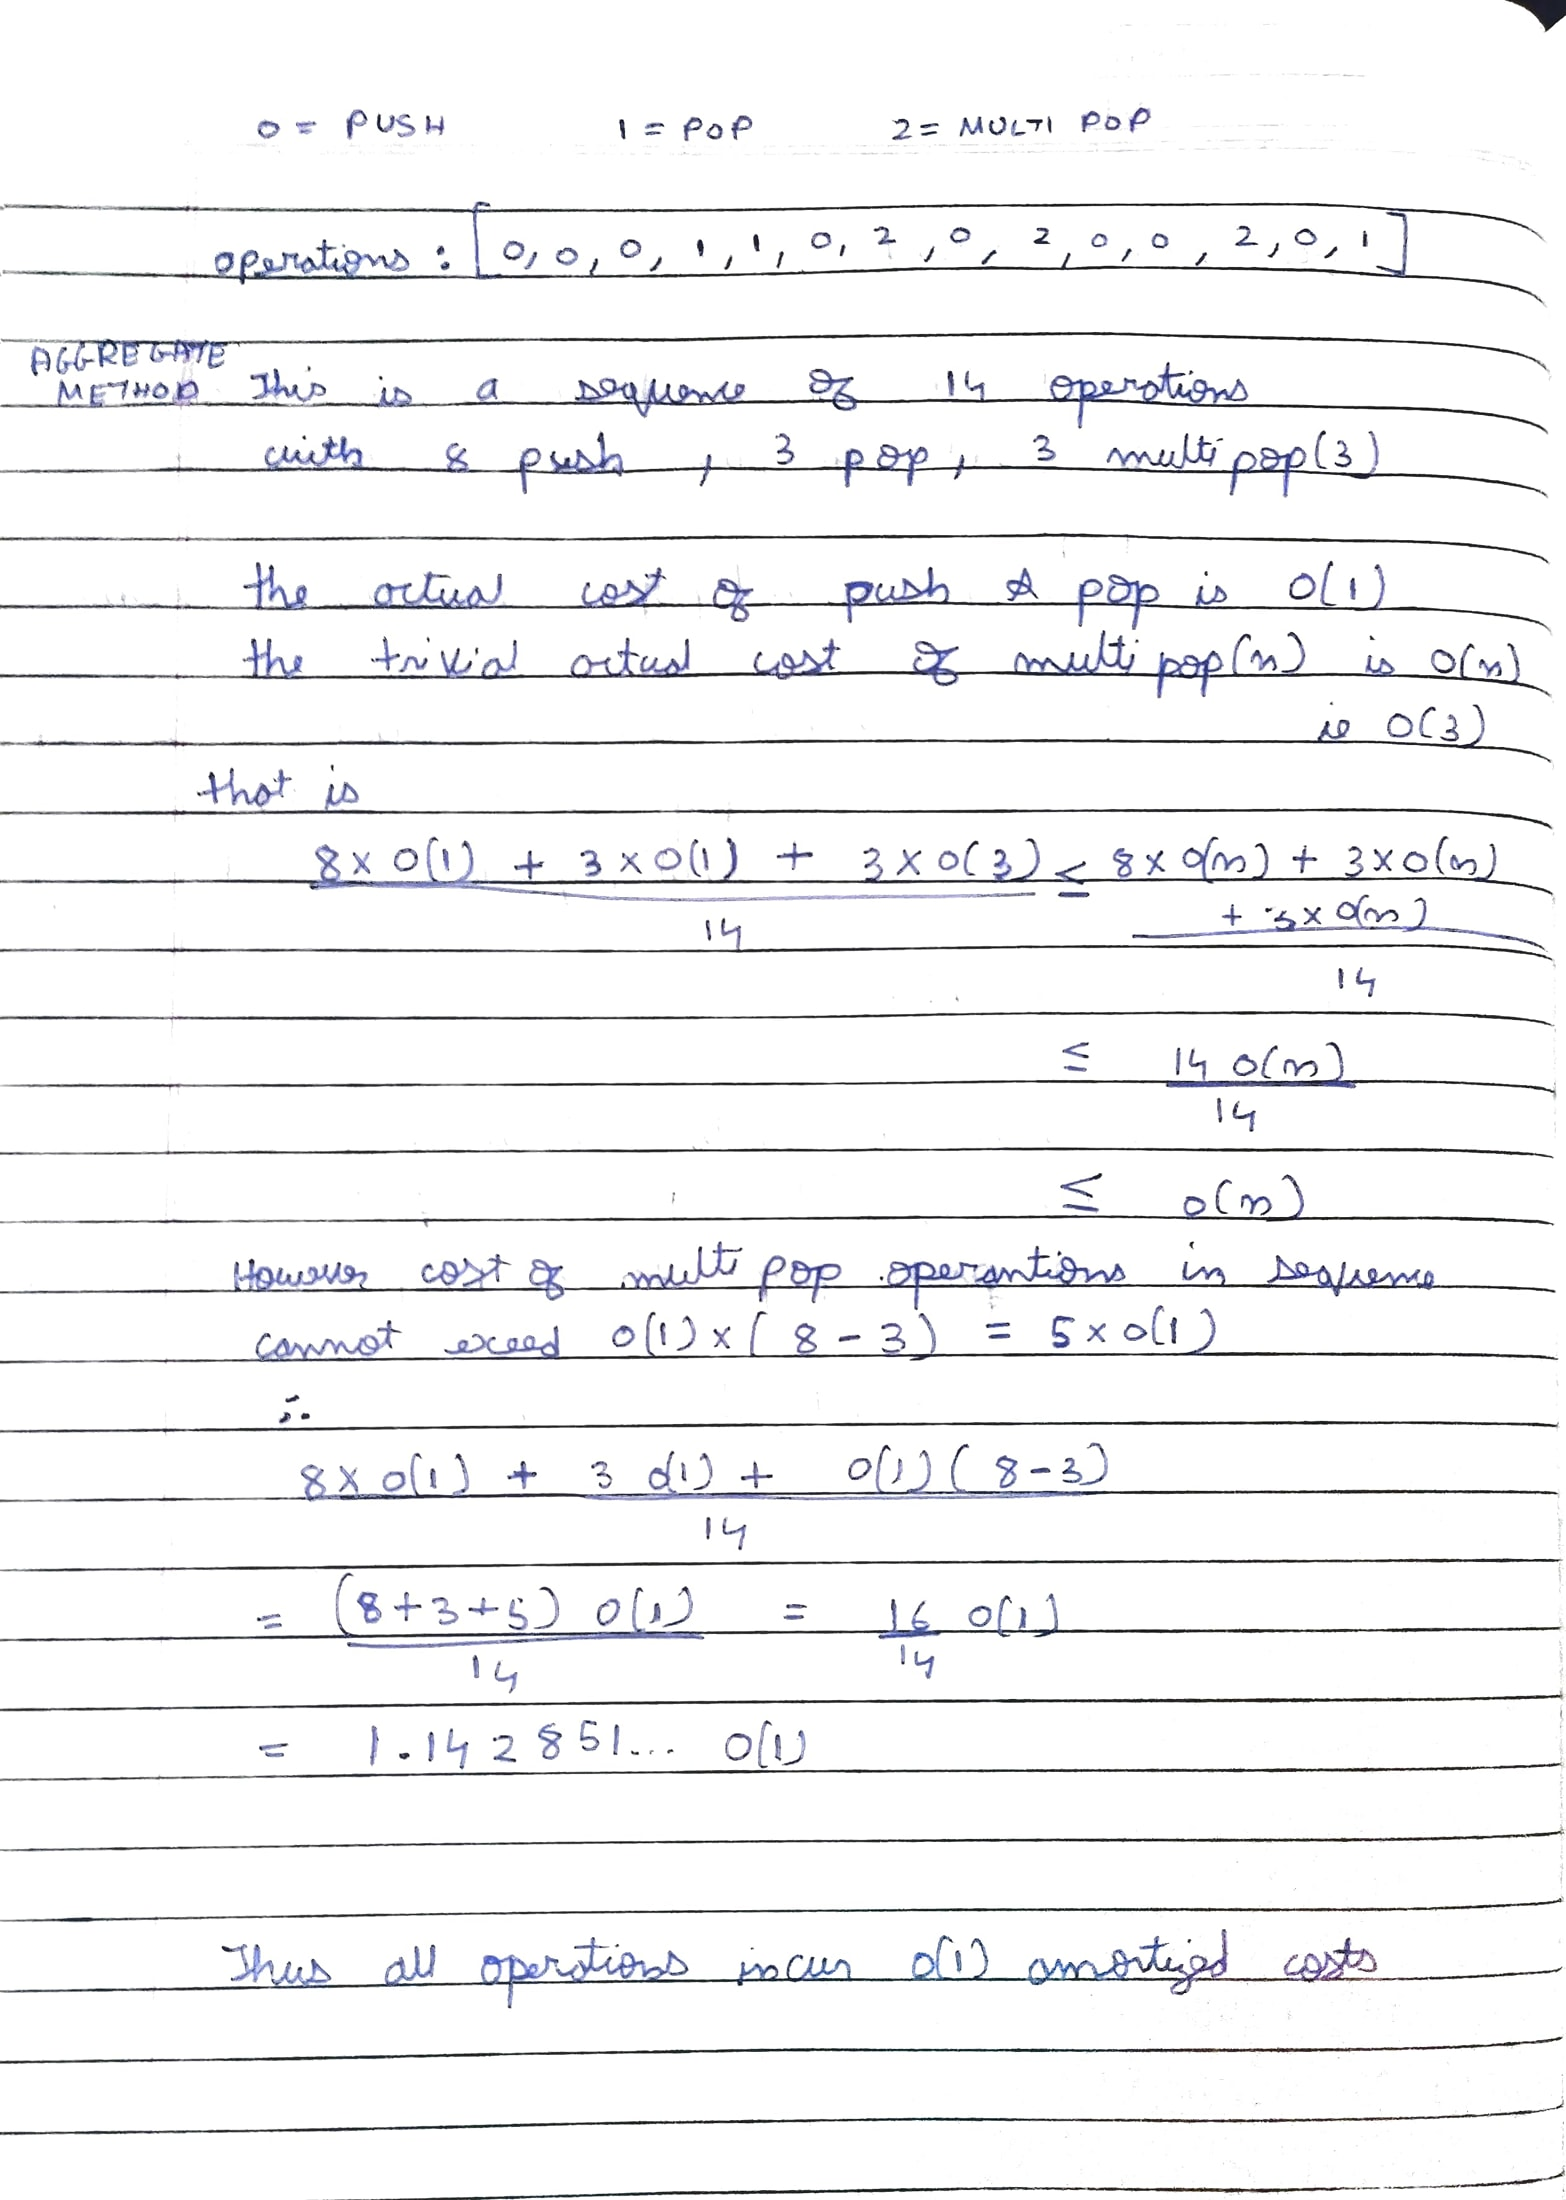 0 = PUSH 1 = POP 2 = MULTI POP
operations : [0, 0, 0, 1, 1, 0, 2, 0, 2, 0, 0, 2, 0, 1]
AGGREGATE
METHOD This is a sequence of 14 operations
with 8 push, 3 pop, 3 multi pop(3)
the actual cost of push & pop is O(1)
the trivial actual cost of multi pop(n) is O(n)
ie O(3)
that is
8 x O(1) + 3 x O(1) + 3 x O(3) ≤ 8 x O(n) + 3 x O(n)
+ 3 x O(n)
14
14
≤ 14 O(n)
14
≤ O(n)
However cost of multi pop operantions in sequence
cannot exceed O(1) x (8 - 3) = 5 x O(1)
∴
8 x O(1) + 3 O(1) + O(1) (8-3)
14
= (8+3+5) O(1) = 16 O(1)
14 14
= 1.142851... O(1)
Thus all operations incur O(1) amortized costs